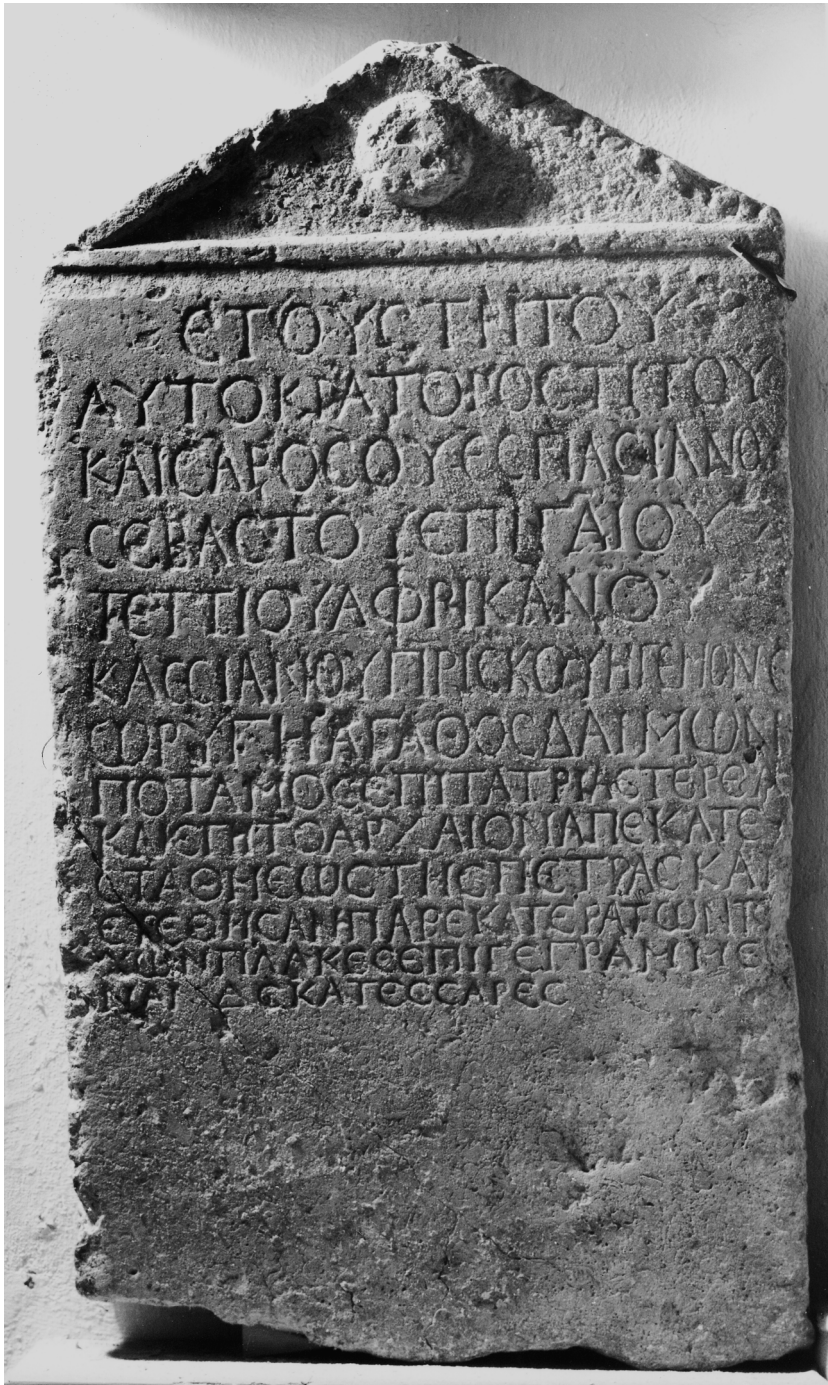 ΕΤΟΥΣ ΤΡΙΤΟΥ
ΑΥΤΟΚΡΑΤΟΡΟΣ ΤΙΤΟΥ
ΚΑΙΣΑΡΟΣ ΟΥΕΣΠΑΣΙΑΝΟΥ
ΣΕΒΑΣΤΟΥ ΕΠΙ ΓΑΙΟΥ
ΤΕΤΤΙΟΥ ΑΦΡΙΚΑΝΟΥ
ΚΑΣΣΙΑΝΟΥ ΠΡΙΣΚΟΥ ΗΓΕΜΟΝΟΣ
ΩΡΥΓΗ ΑΓΑΘΟΣ ΔΑΙΜΩΝ
ΠΟΤΑΜΟΣ ΕΠΙ ΤΑ ΤΡΙΑ ΣΤΕΡΕΑ
ΚΑΙ ΕΠΙ ΤΟ ΑΡΧΑΙΟΝ ΑΠΕΚΑΤΕ
ΣΤΑΘΗ ΕΩΣ ΤΗΣ ΠΕΤΡΑΣ ΚΑΙ
ΕΤΕΘΗΣΑΝ ΠΑΡ ΕΚΑΤΕΡΑ ΤΩΝ ΤΟΙ
ΧΩΝ ΠΛΑΚΕΣ ΕΠΙΓΕΓΡΑΜΜΕ
ΝΑΙ ΔΕΚΑΤΕΣΣΑΡΕΣ